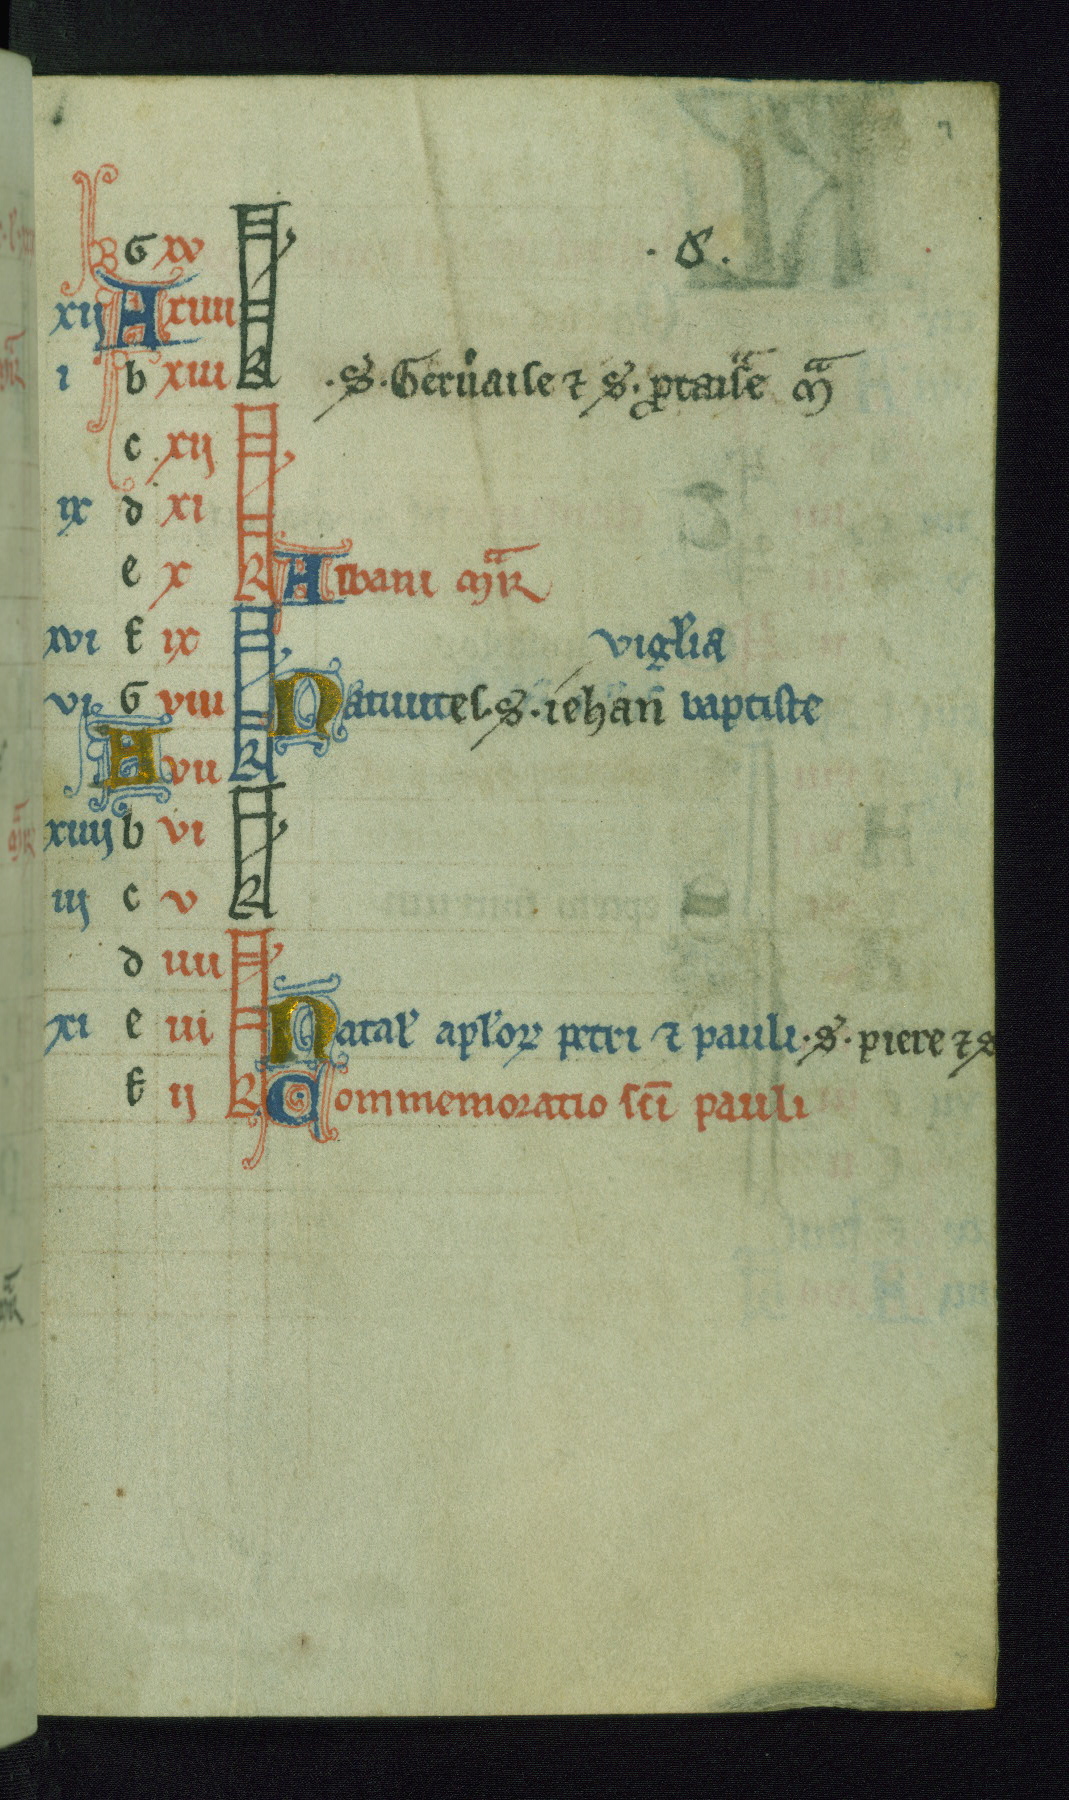 7
G xv . 8 .
xij A xiiii
i b xiii .S. Geruaise ⁊ S. ptaise mᵃ
c xij
ix d xi
e x KL Albani mᵃR
xvi f ix vigᷝlia
vi G viii Natiuites .S. iehan̄ baptiste
A vii
xiiij b vi
iij c v
d iiii
xi e iii Natal' apl'oꝝ petri ⁊ pauli .S. piere ⁊ s
f ij Commemoratio sc̄i pauli